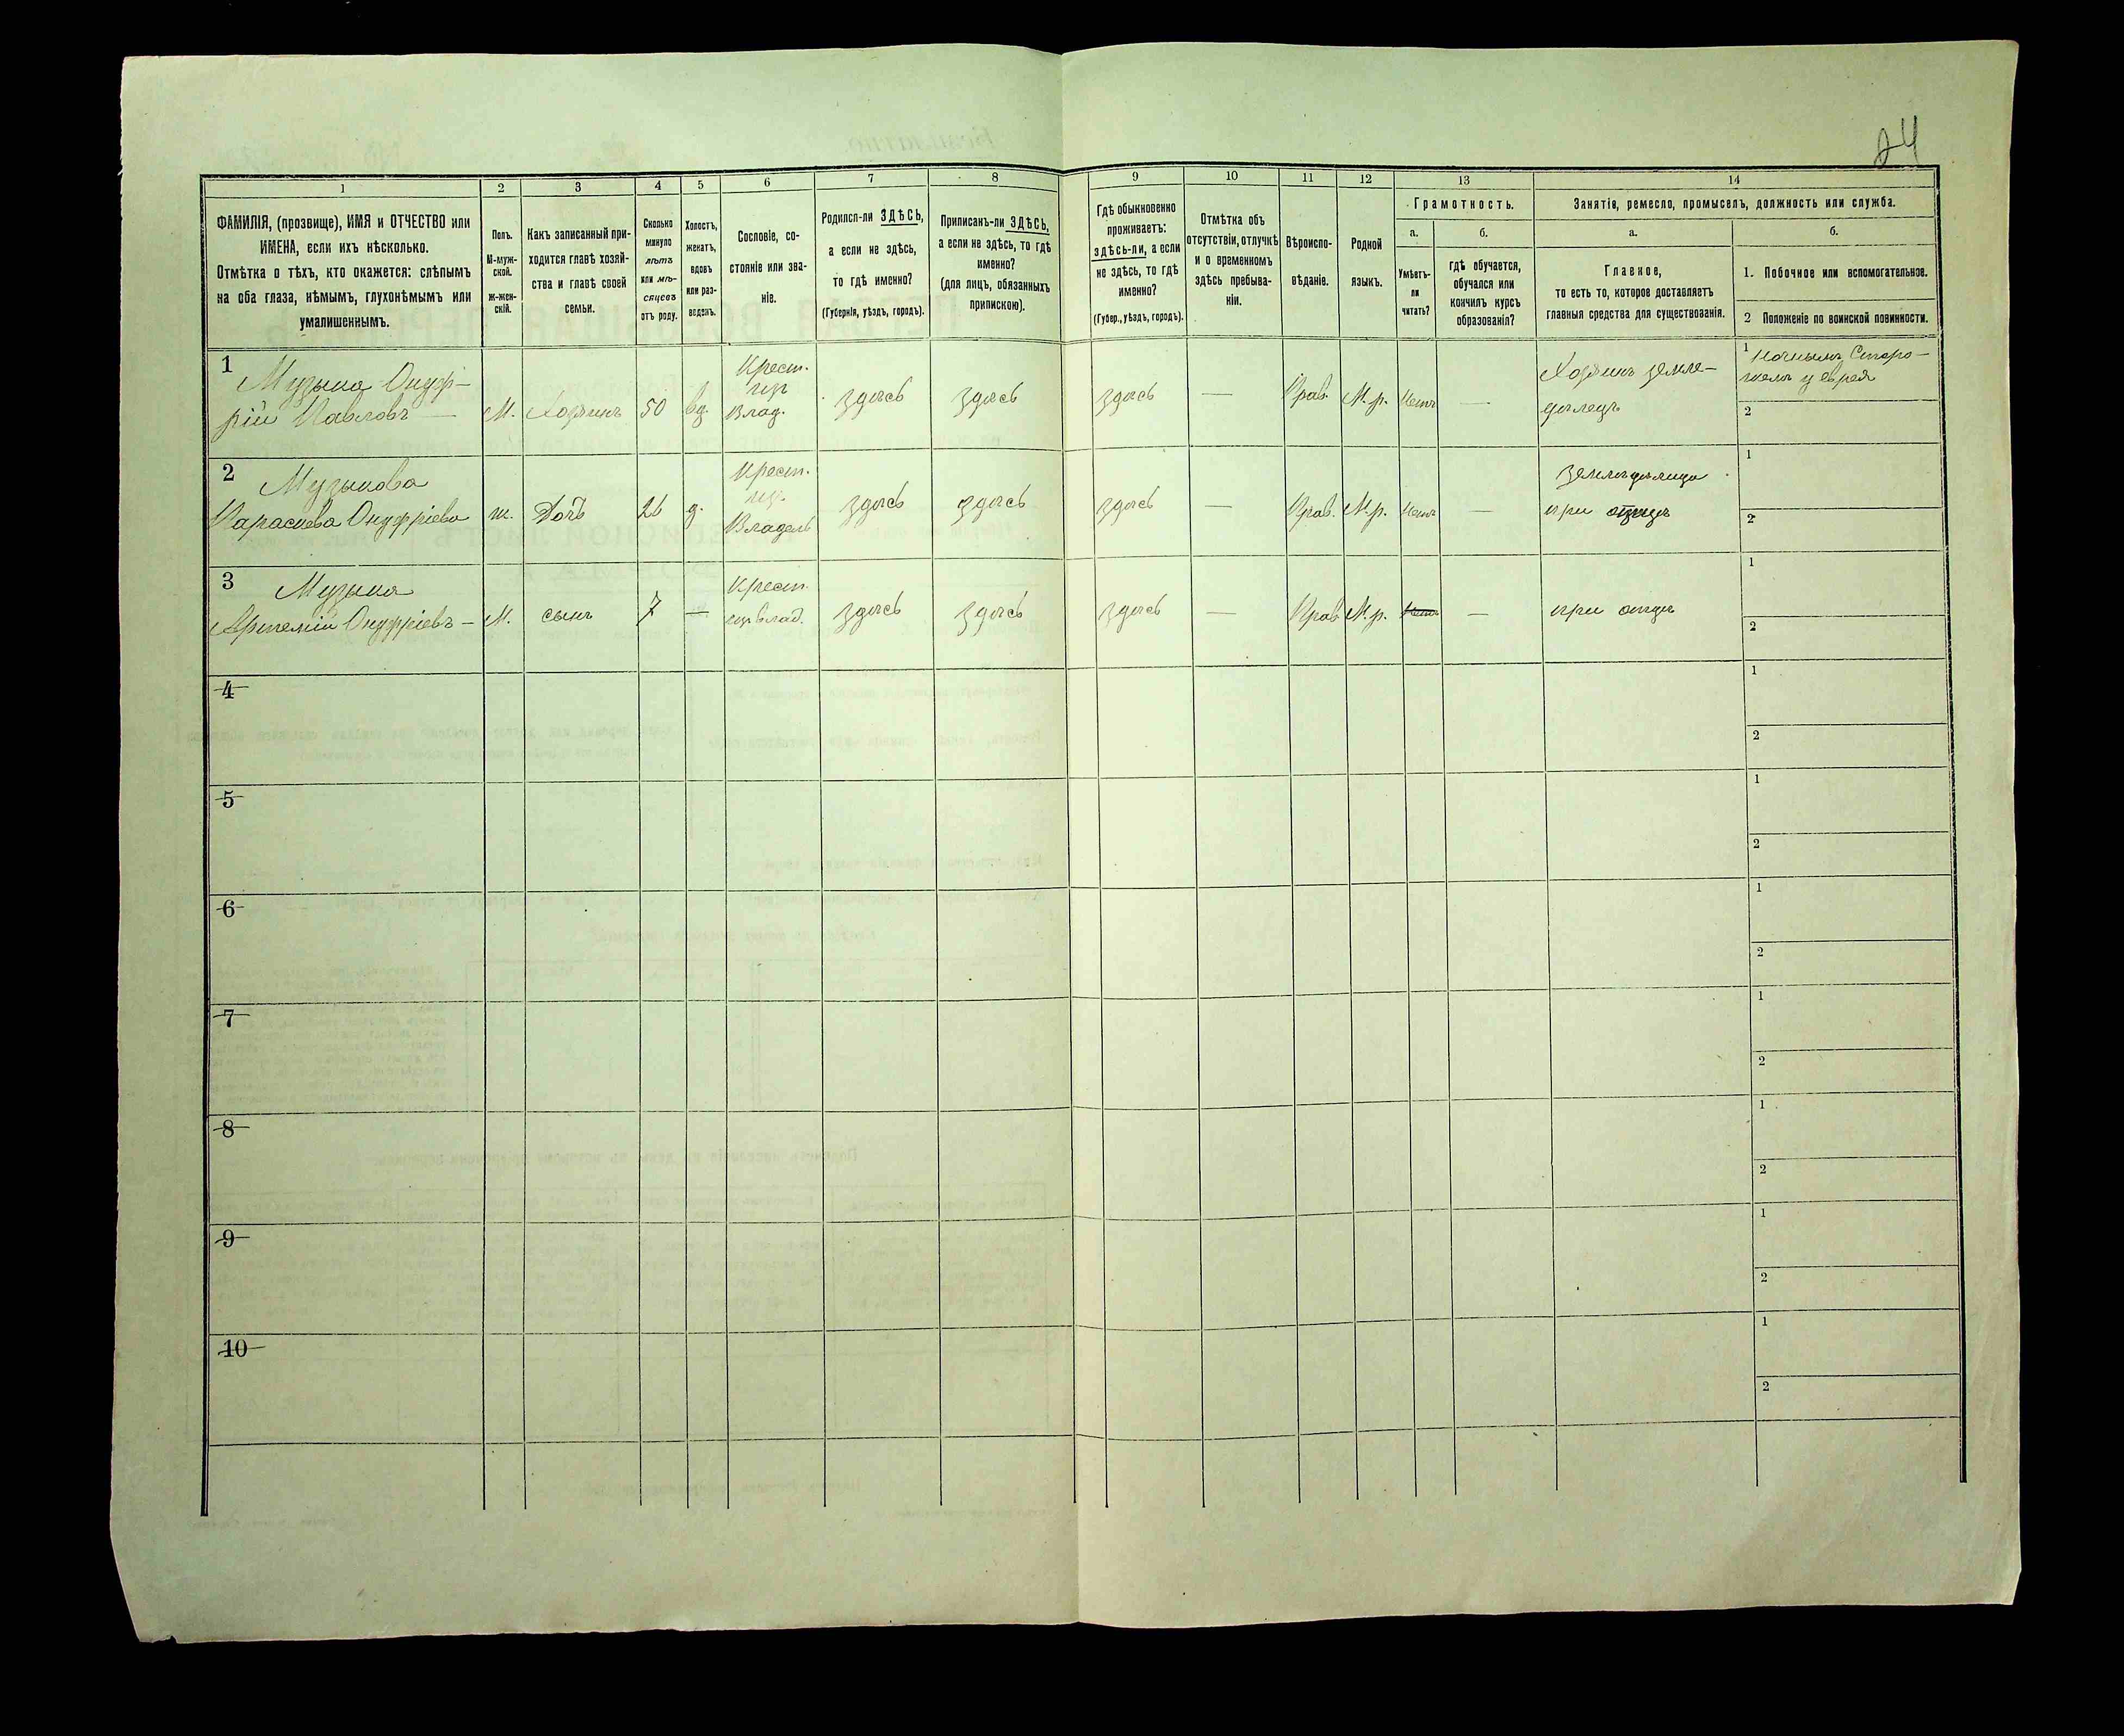 24
1 2 3 4 5 6 7 8 9 10 11 12 13 14
ФАМИЛІЯ, (прозвище), ИМЯ и ОТЧЕСТВО или
ИМЕНА, если ихъ нѣсколько.
Отмѣтка о тѣхъ, кто окажется: слѣпымъ
на оба глаза, нѣмымъ, глухонѣмымъ или
умалишеннымъ.
Полъ.
М-муж-
ской.
Ж-жен-
скій.
Какъ записанный при-
ходится главѣ хозяй-
ства и главѣ своей
семьи.
Сколько
минуло
лѣтъ
или мѣ-
сяцевъ
отъ роду.
Холостъ,
женатъ,
вдовъ
или раз-
веденъ.
Сословіе, со-
стояніе или зва-
ніе.
Родился-ли ЗДѢСЬ,
а если не здѣсь,
то гдѣ именно?
(Губернія, уѣздъ, городъ).
Приписанъ-ли ЗДѢСЬ,
а если не здѣсь, то гдѣ
именно?
(для лицъ, обязанныхъ
припискою).
Гдѣ обыкновенно
проживаетъ:
здѣсь-ли, а если
не здѣсь, то гдѣ
именно?
(Губер., уѣздъ, городъ).
Отмѣтка объ
отсутствіи, отлучкѣ
и о временномъ
здѣсь пребыва-
ніи.
Вѣроиспо-
вѣданіе.
Родной
языкъ.
Грамотность.
а.
Умѣетъ-
ли
читать?
б.
гдѣ обучается,
обучался или
кончилъ курсъ
образованія?
Занятіе, ремесло, промыселъ, должность или служба.
а.
Главное,
то есть то, которое доставляетъ
главныя средства для существованія.
б.
1. Побочное или вспомогательное.
2 Положеніе по воинской повинности.
1
Музыка Онуф-
рій Павловъ —
М.
Хозяинъ
50
вд.
Крест.
изъ
Влад.
здѣсь
здѣсь
здѣсь
—
Прав.
М.р.
Нетъ
—
Хозяинъ земле-
дѣлецъ
1 Ночнымъ Сторо-
жемъ у еврея
2
2
Музыкова
Параскева Онуфріева
ж.
Дочь
26
д.
Крест.
из.
Владель
здѣсь
здѣсь
здѣсь
—
Прав.
М.р.
Нетъ
—
Земледѣлица
при отцѣ
1
2
3
Музыка
Артемій Онуфріевъ —
М.
сынъ
7
—
Крест.
изъ влад.
здѣсь
здѣсь
здѣсь
—
Прав
М.р.
Нетъ
—
при отцѣ
1
2
4
1
2
5
1
2
6
1
2
7
1
2
8
1
2
9
1
2
10
1
2